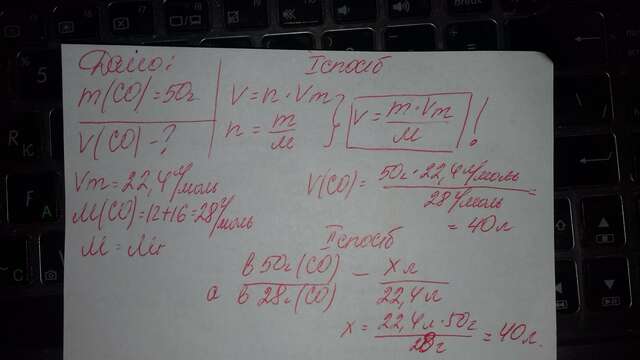 Дано:
m(CO) = 50г
V(CO) - ?
Vm = 22,4 л/моль
M(CO) = 12+16 = 28 г/моль
M = Mr
I спосіб
V = n · Vm
n = m/M
V = m · Vm / M !
V(CO) = 50г · 22,4 л/моль / 28 г/моль =
= 40л
II спосіб
в 50г (CO) — x л
а в 28г (CO) 22,4 л
x = 22,4 л · 50г / 28г = 40л.
5
R
К
F
А
C
С
Ctrl